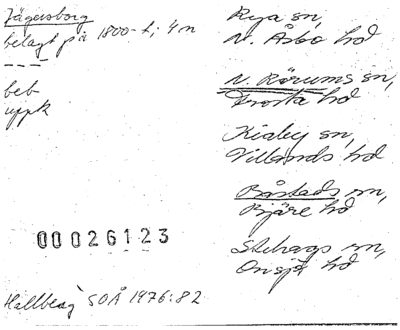 Jägersborg
belagt på 1800-t; 4 m
---
beb
uppk
Rya sn,
N. Åsbo hd
N. Rörums sn,
Frosta hd
Kiaby sn,
Villands hd
Båstads sn,
Bjäre hd
Stehags sn,
Onsjö hd
00026123
Hallberg SOÅ 1976:82